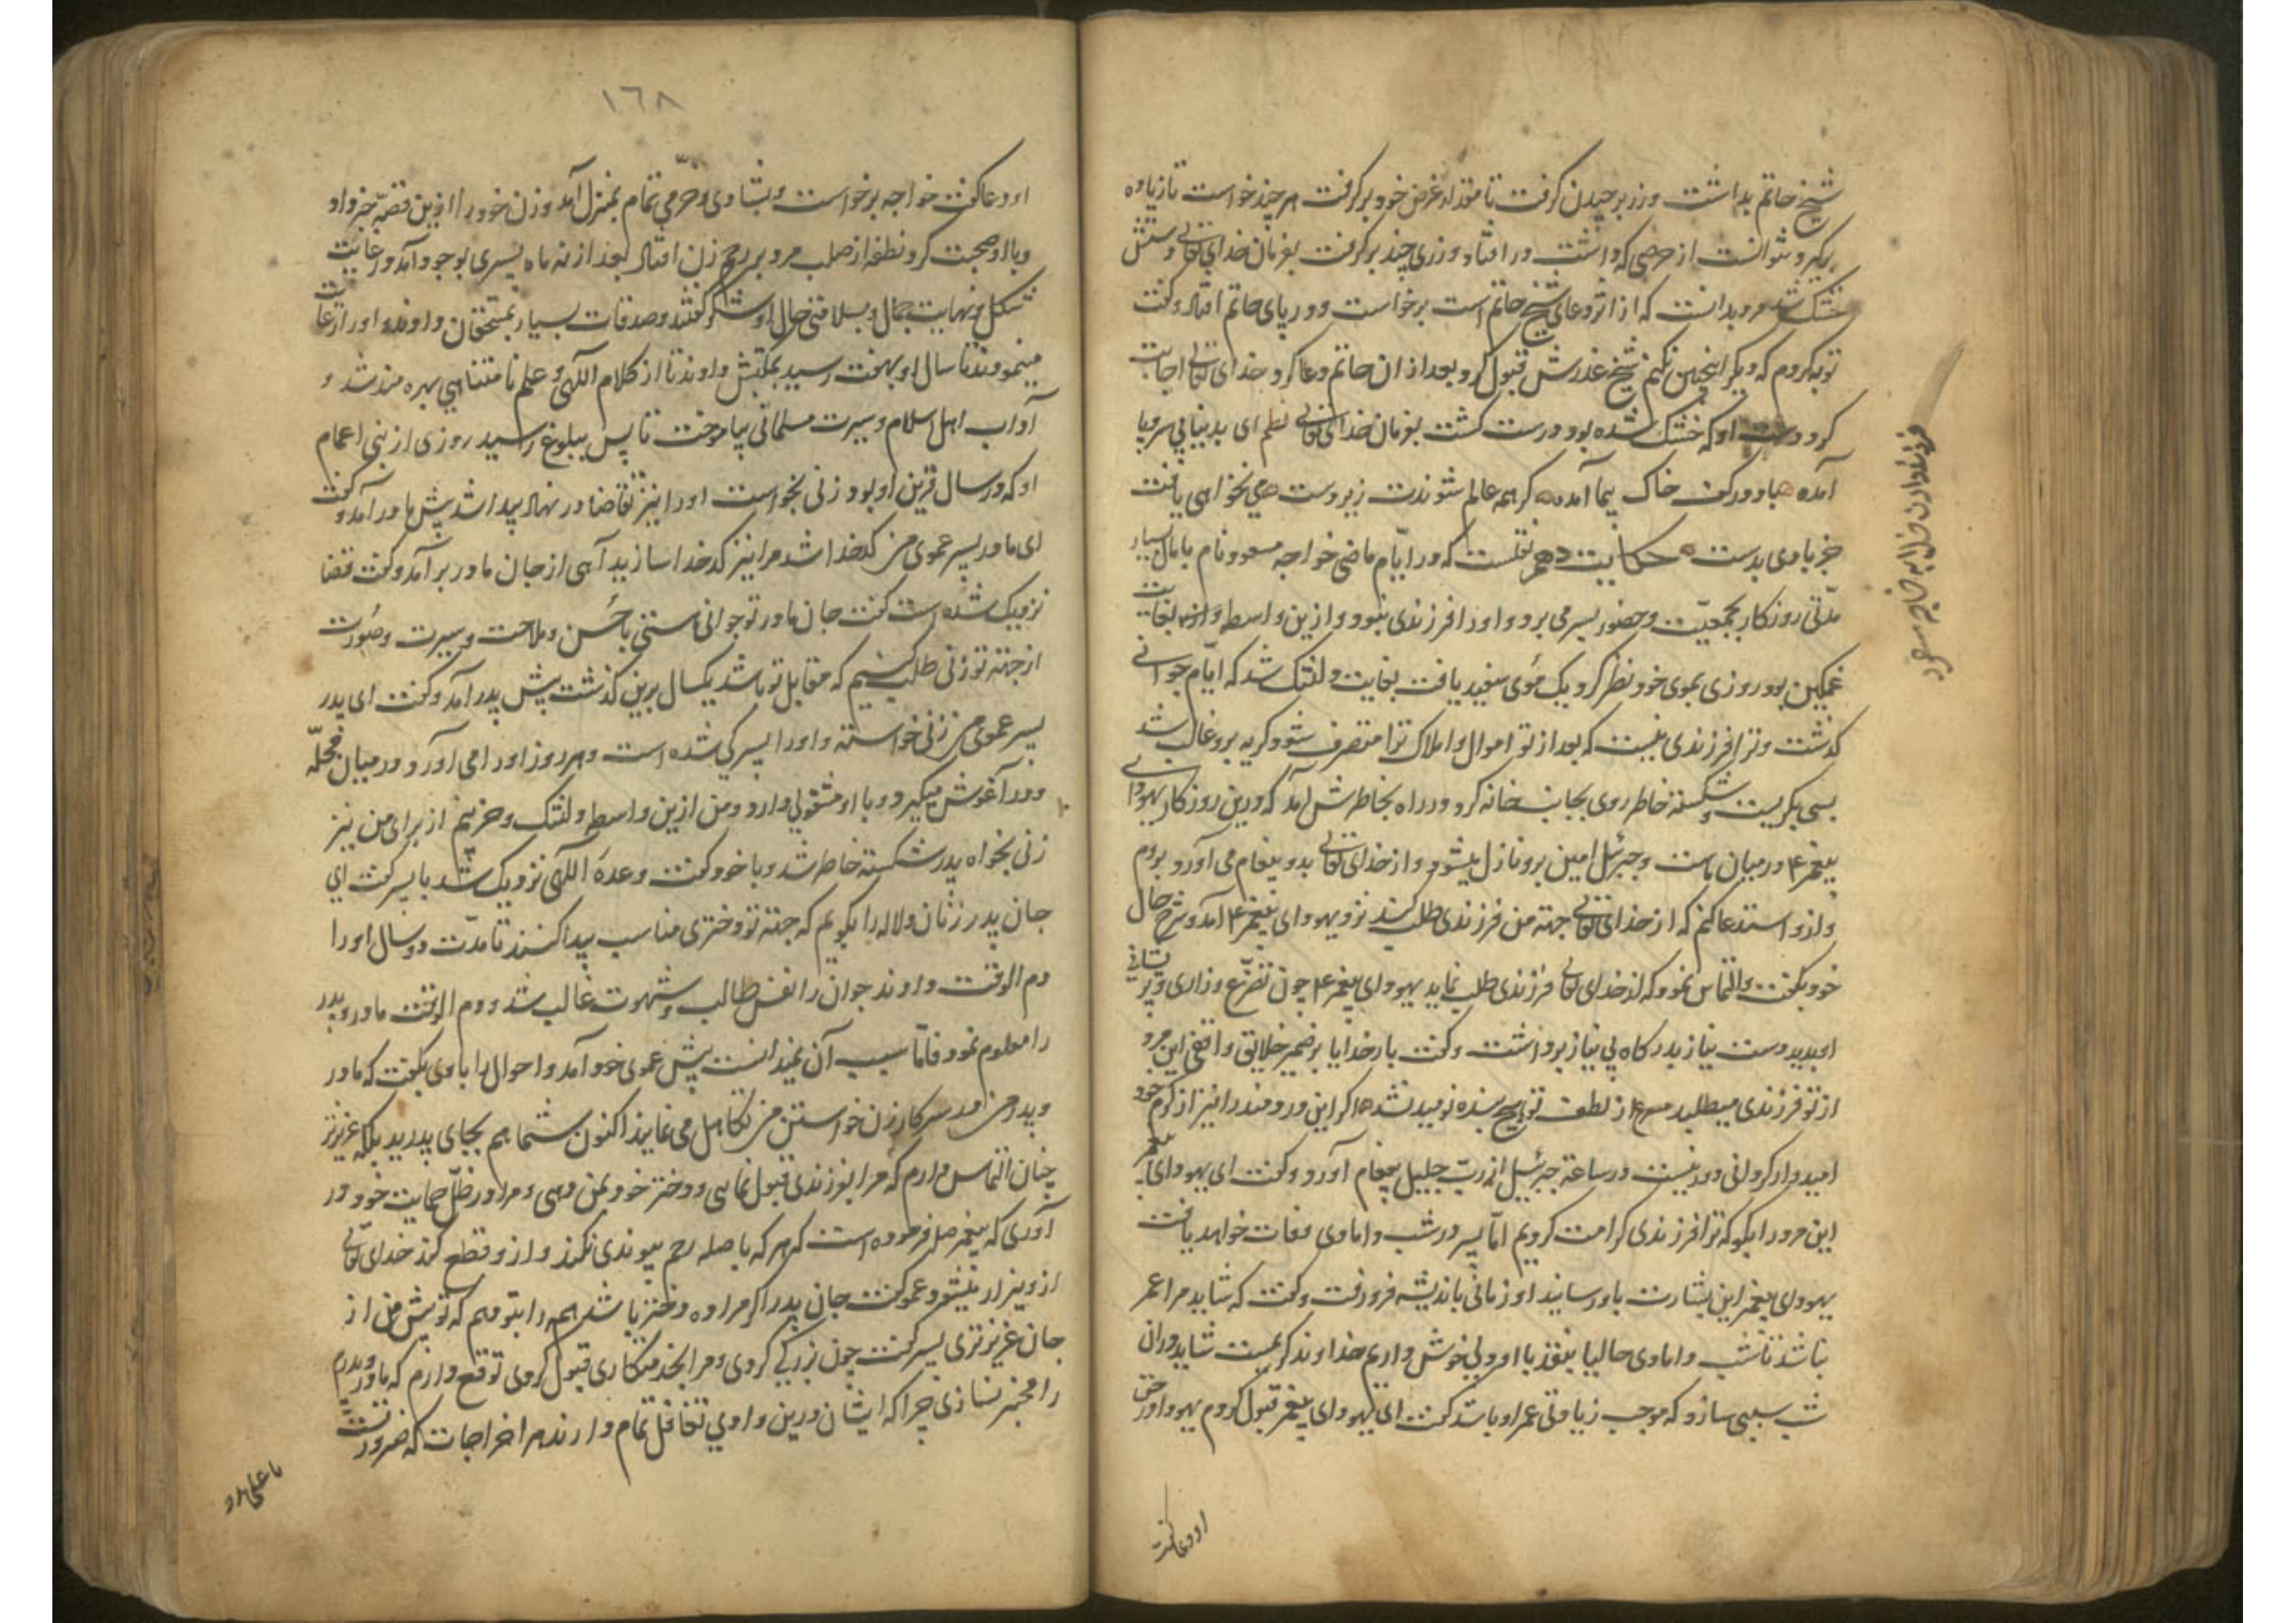 شیخ حاتم بداشت و زر برچیدن گرفت تا مقدار غرض خود برگرفت هر چند خواست تا زیاده
بگیرد نتوانست از حرصی که داشت در افتاد و زری چند برگرفت بفرمان خدای تعالی دستش
خشک شد مرد بدانست که از اثر دعای شیخ حاتم است برخواست و در پای حاتم افتاد و گفت
توبه کردم که دیگر اینچنین نکنم شیخ عذرش قبول کرد بعد از ان حاتم دعا کرد خدای تعالی اجابت
کرد و دست او که خشک شده بود درست گشت بفرمان خدای تعالی نظم ای بدنیا بی سر و پا
آمده باد در کف خاک پیما آمده گر همه عالم شوندت زیردست می نخواهی یافت
جز بادی بدست حکایت دهم نقلست که در ایّام ماضی خواجه مسعود نام با مال بسیار
مدّتی روزکار بجمعیّت و حضور بسر می برد و او را فرزندی نبود و ازین واسطه بغایت
غمگین بود روزی بموی خود نظر کرد یک موی سفید یافت بغایت دلتنک شد که ایّام جوانی
گذشت و ترا فرزندی نیست که بعد از تو اموال و املاک ترا متصرف شود گریه برو غالب شد
بسی بگریست و شکسته خاطر روی بجانب خانه کرد در راه بخاطرش آمد که درین روزکار یهودای
پیغمبر ع در میان ماست و جبرئیل امین برو نازل میشود و از خدای تعالی بدو پیغام می آورد بروم
و ازو استدعا کنم که از خدای تعالی جهته من فرزندی طلب کند نزد یهودای پیغمبر ع آمد و شرح حال
خود بگفت و التماس نمود که از خدای تعالی فرزندی طلب نماید یهودای پیغمبر ع چون تضرّع و زاری و پریشانی
او بدید دست نیاز بدرگاه بی نیاز برداشت و گفت بار خدایا بر ضمیر خلایق واقفی این مرد
از تو فرزندی میطلبد مصرع از لطف تو هیچ بنده نومید نشد اگر این دردمند را نیز از کرم خود
امیدوار گردانی دور نیست در ساعة جبرئیل از ربّ جلیل پیغام آورد و گفت ای یهودای پیغمبر
این مرد را بگو که ترا فرزندی کرامت کردیم امّا پسر در شب دامادی وفات خواهد یافت
یهودای پیغمبر این بشارت باو رسانید او زمانی باندیشه فرو رفت و گفت که شاید مرا عمر
نباشد تا شب دامادی حالیا بنقد با او دلی خوش داریم خداوند کریمست شاید در ان
شب سببی سازد که موجب زیادتی عمر او باشد گفت ای یهودای پیغمبر قبول کردم یهودا در حق
او دعا گفت
فرزند دادن خدای بخواجه مسعود
١٦٨
او دعا گفت خواجه برخواست و بشادی و خرّمی تمام بمنزل آمد و زن خود را ازین قصّه خبر داد
و با او صحبت کرد نطفه از صلب مرد بر رحم زن افتاد بعد از نه ماه پسری بوجود آمد در غایت
شکل و نهایت جمال و بسلامتی حال او شکر گفتند و صدقات بسیار بمستحقان دادند و او را رعایت
مینمودند تا سال او بهفت رسید بمکتبش دادند تا از کلام اللّهی و علم نامتناهی بهره مند شد و
آداب اهل اسلام و سیرت مسلمانی بیاموخت تا پس ببلوغ رسید روزی از بنی اعمام
او که در سال قرین او بود زنی بخواست او را نیز تقاضا در نهاد پیدا شد پیش مادر آمد و گفت
ای مادر پسر عموی من کدخدا شد مرا نیز کدخدا سازید آهی از جان مادر برآمد و گفت قضا
نزدیک شده است گفت جان مادر تو جوانی هستی با حُسن و ملاحت و سیرت و صُورت
از جهته تو زنی طلب کنیم که مقابل تو باشد یکسال برین گذشت پیش پدر آمد و گفت ای پدر
پسر عموی من زنی خواسته و او را پسرکی شده است و هر روز او را می آورد در میان محلّه
و در آغوش میگیرد و با او مشغولی دارد و من ازین واسطه دلتنک و حزینم از برای من نیز
زنی بخواه پدر شکسته خاطر شد و با خود گفت وعدهٔ اللّهی نزدیک شد با پسر گفت ای
جان پدر زنان دلاله را بگویم که جهته تو دختری مناسب پیدا کنند تا مدّت دو سال او را
دم الوقت دادند جوان را نفس طالب و شهوت غالب شد و دم الوقت مادر و پدر
را معلوم نمود فامّا سبب آن نمیدانست پیش عموی خود آمد و احوال را با وی بگفت که مادر
و پدر من در سرکار زن خواستن من تکاهل می نمایند اکنون شما هم بجای پدرید بلکه عزیزتر
چنان التماس دارم که مرا بفرزندی قبول نمایی و دختر خود بمن دهی و مرا در ظلّ حمایت خود در
آوری که پیغمبر صلم فرموده است که هر که با صله رحم پیوندی نکند و ازو قطع کند خدای تعالی
ازو بیزار میشود عمو گفت جان پدر اگر مرا ده دختر باشد همه را بتو دهم که تو پیش من از
جان عزیزتری پسر گفت چون بزرگی کردی و مرا بخدمتکاری قبول کردی توقع دارم که مادر و پدرم
را مخبر نسازی چرا که ایشان درین وادی تغافل تمام دارند هر اخراجات که ضرورتست